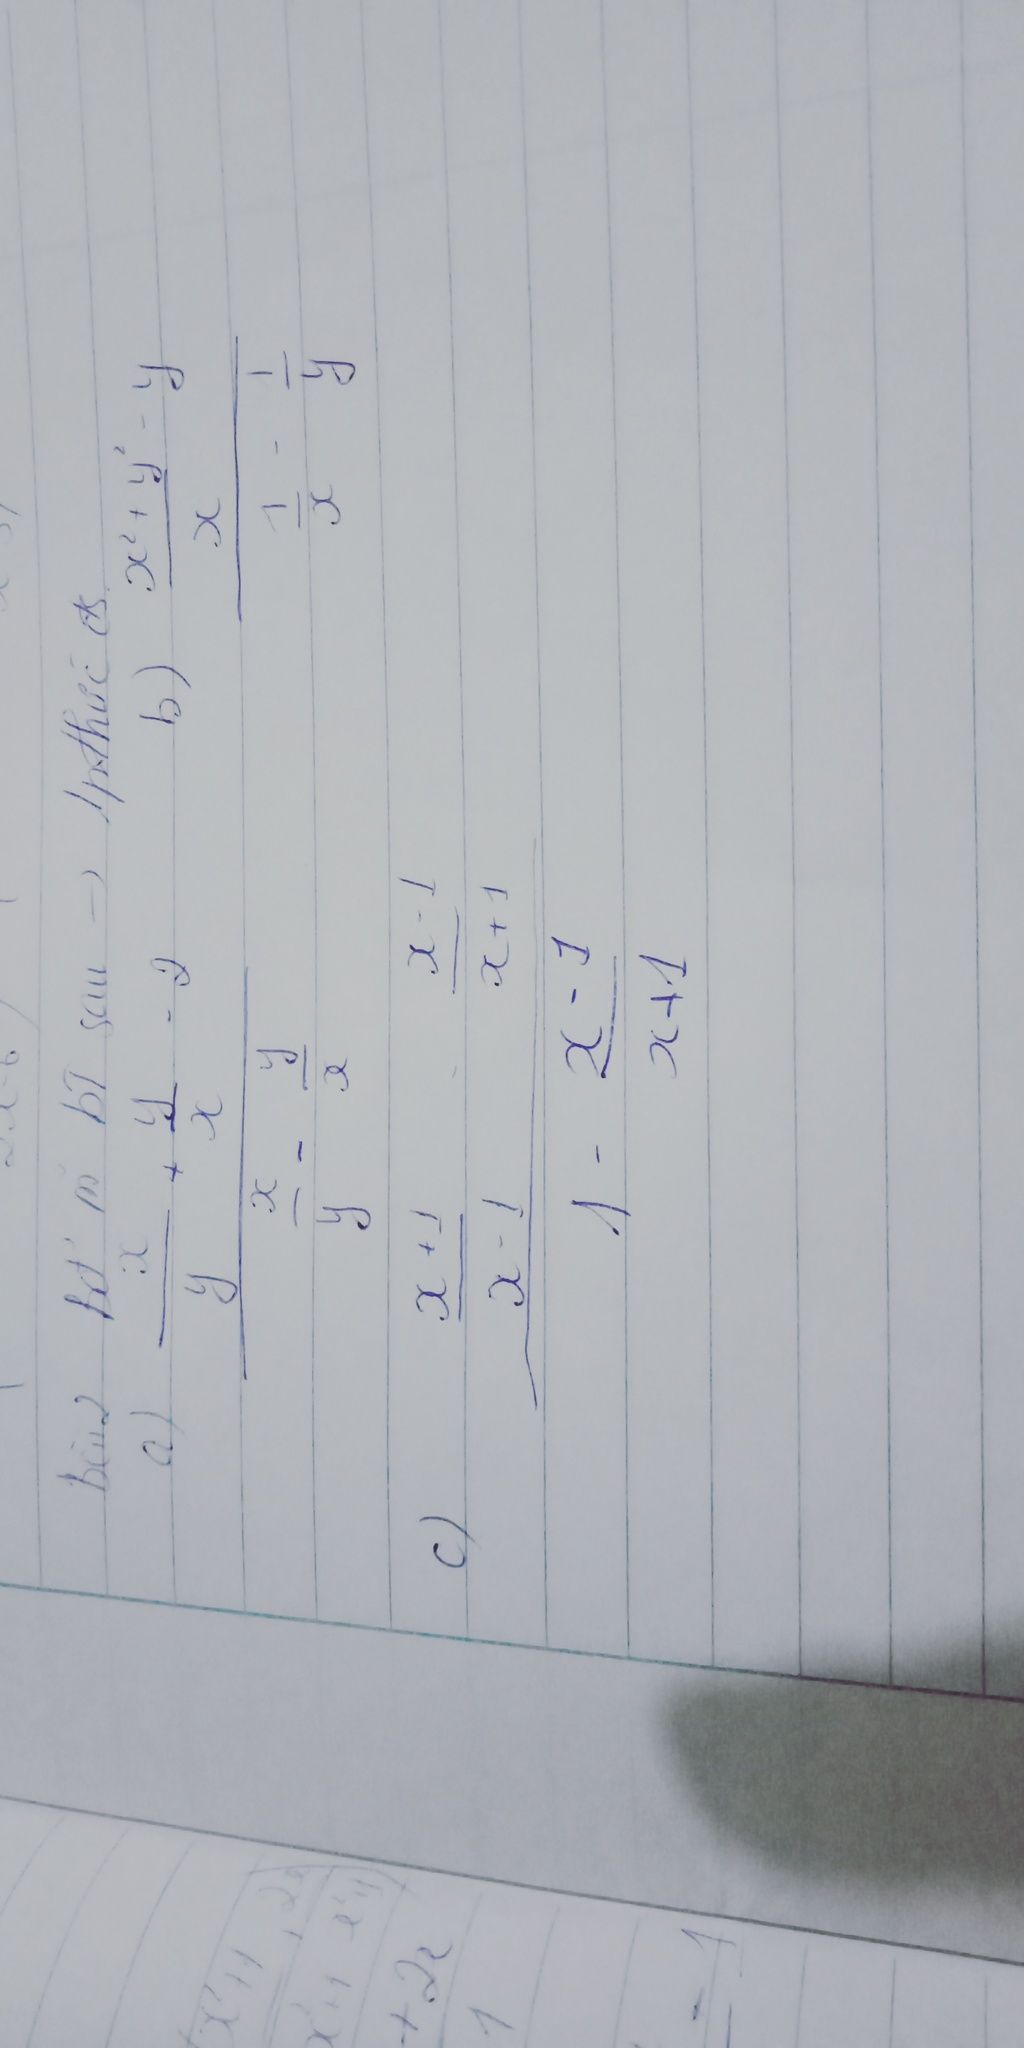 Bài 2 Bđ m̃ BT sau → 1 pthức đs
a) \frac{\frac{x}{y} + \frac{y}{x} - 2}{\frac{x}{y} - \frac{y}{x}} b) \frac{\frac{x² + y²}{x} - y}{\frac{1}{x} - \frac{1}{y}}
c) \frac{\frac{x+1}{x-1} - \frac{x-1}{x+1}}{1 - \frac{x-1}{x+1}}